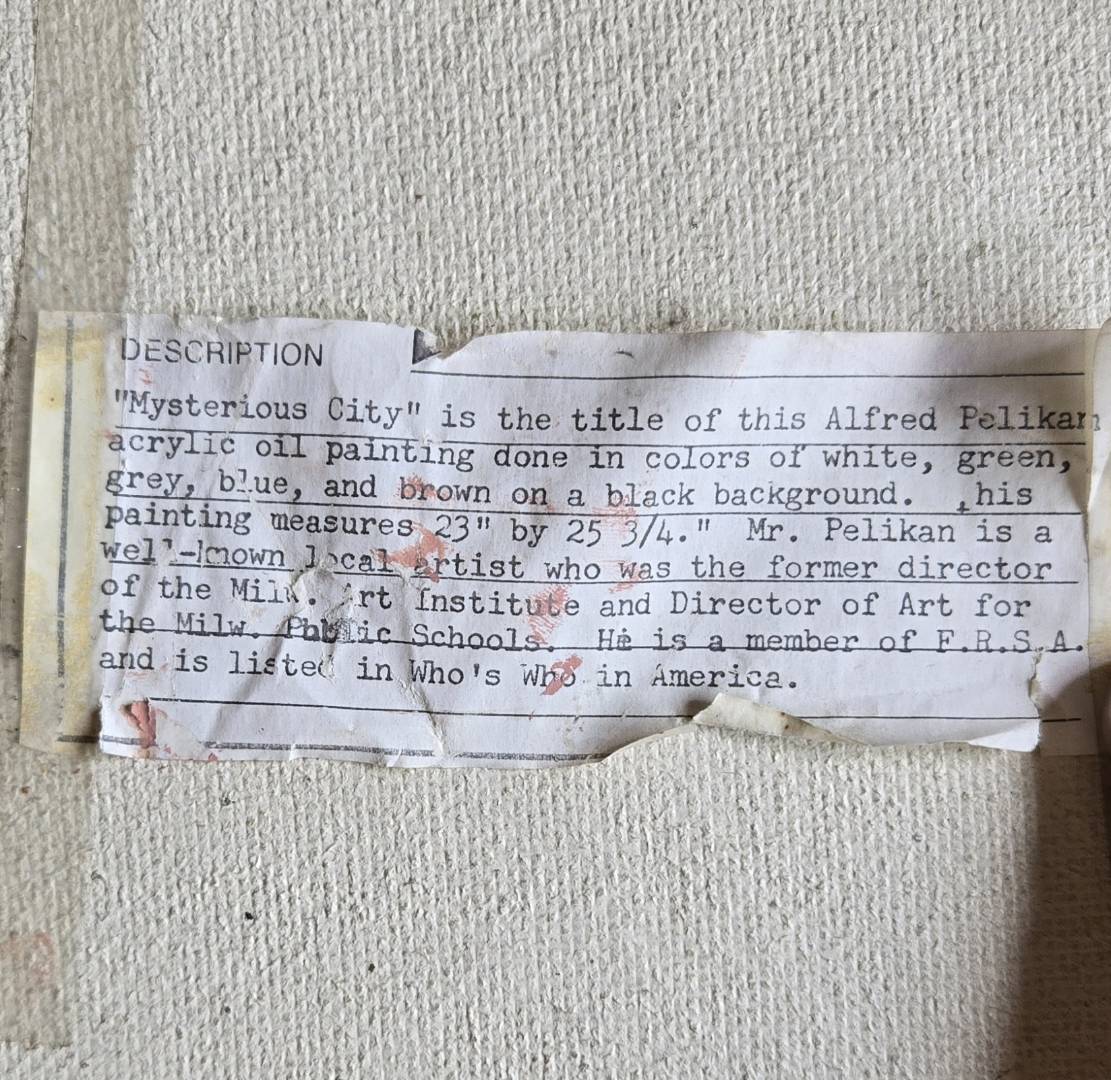 DESCRIPTION
"Mysterious City" is the title of this Alfred Pelikan
acrylic oil painting done in colors of white, green,
grey, blue, and brown on a black background. This
painting measures 23" by 25 3/4." Mr. Pelikan is a
well-known local artist who was the former director
of the Milw. Art Institute and Director of Art for
the Milw. Public Schools. He is a member of F.R.S.A.
and is listed in Who's Who in America.